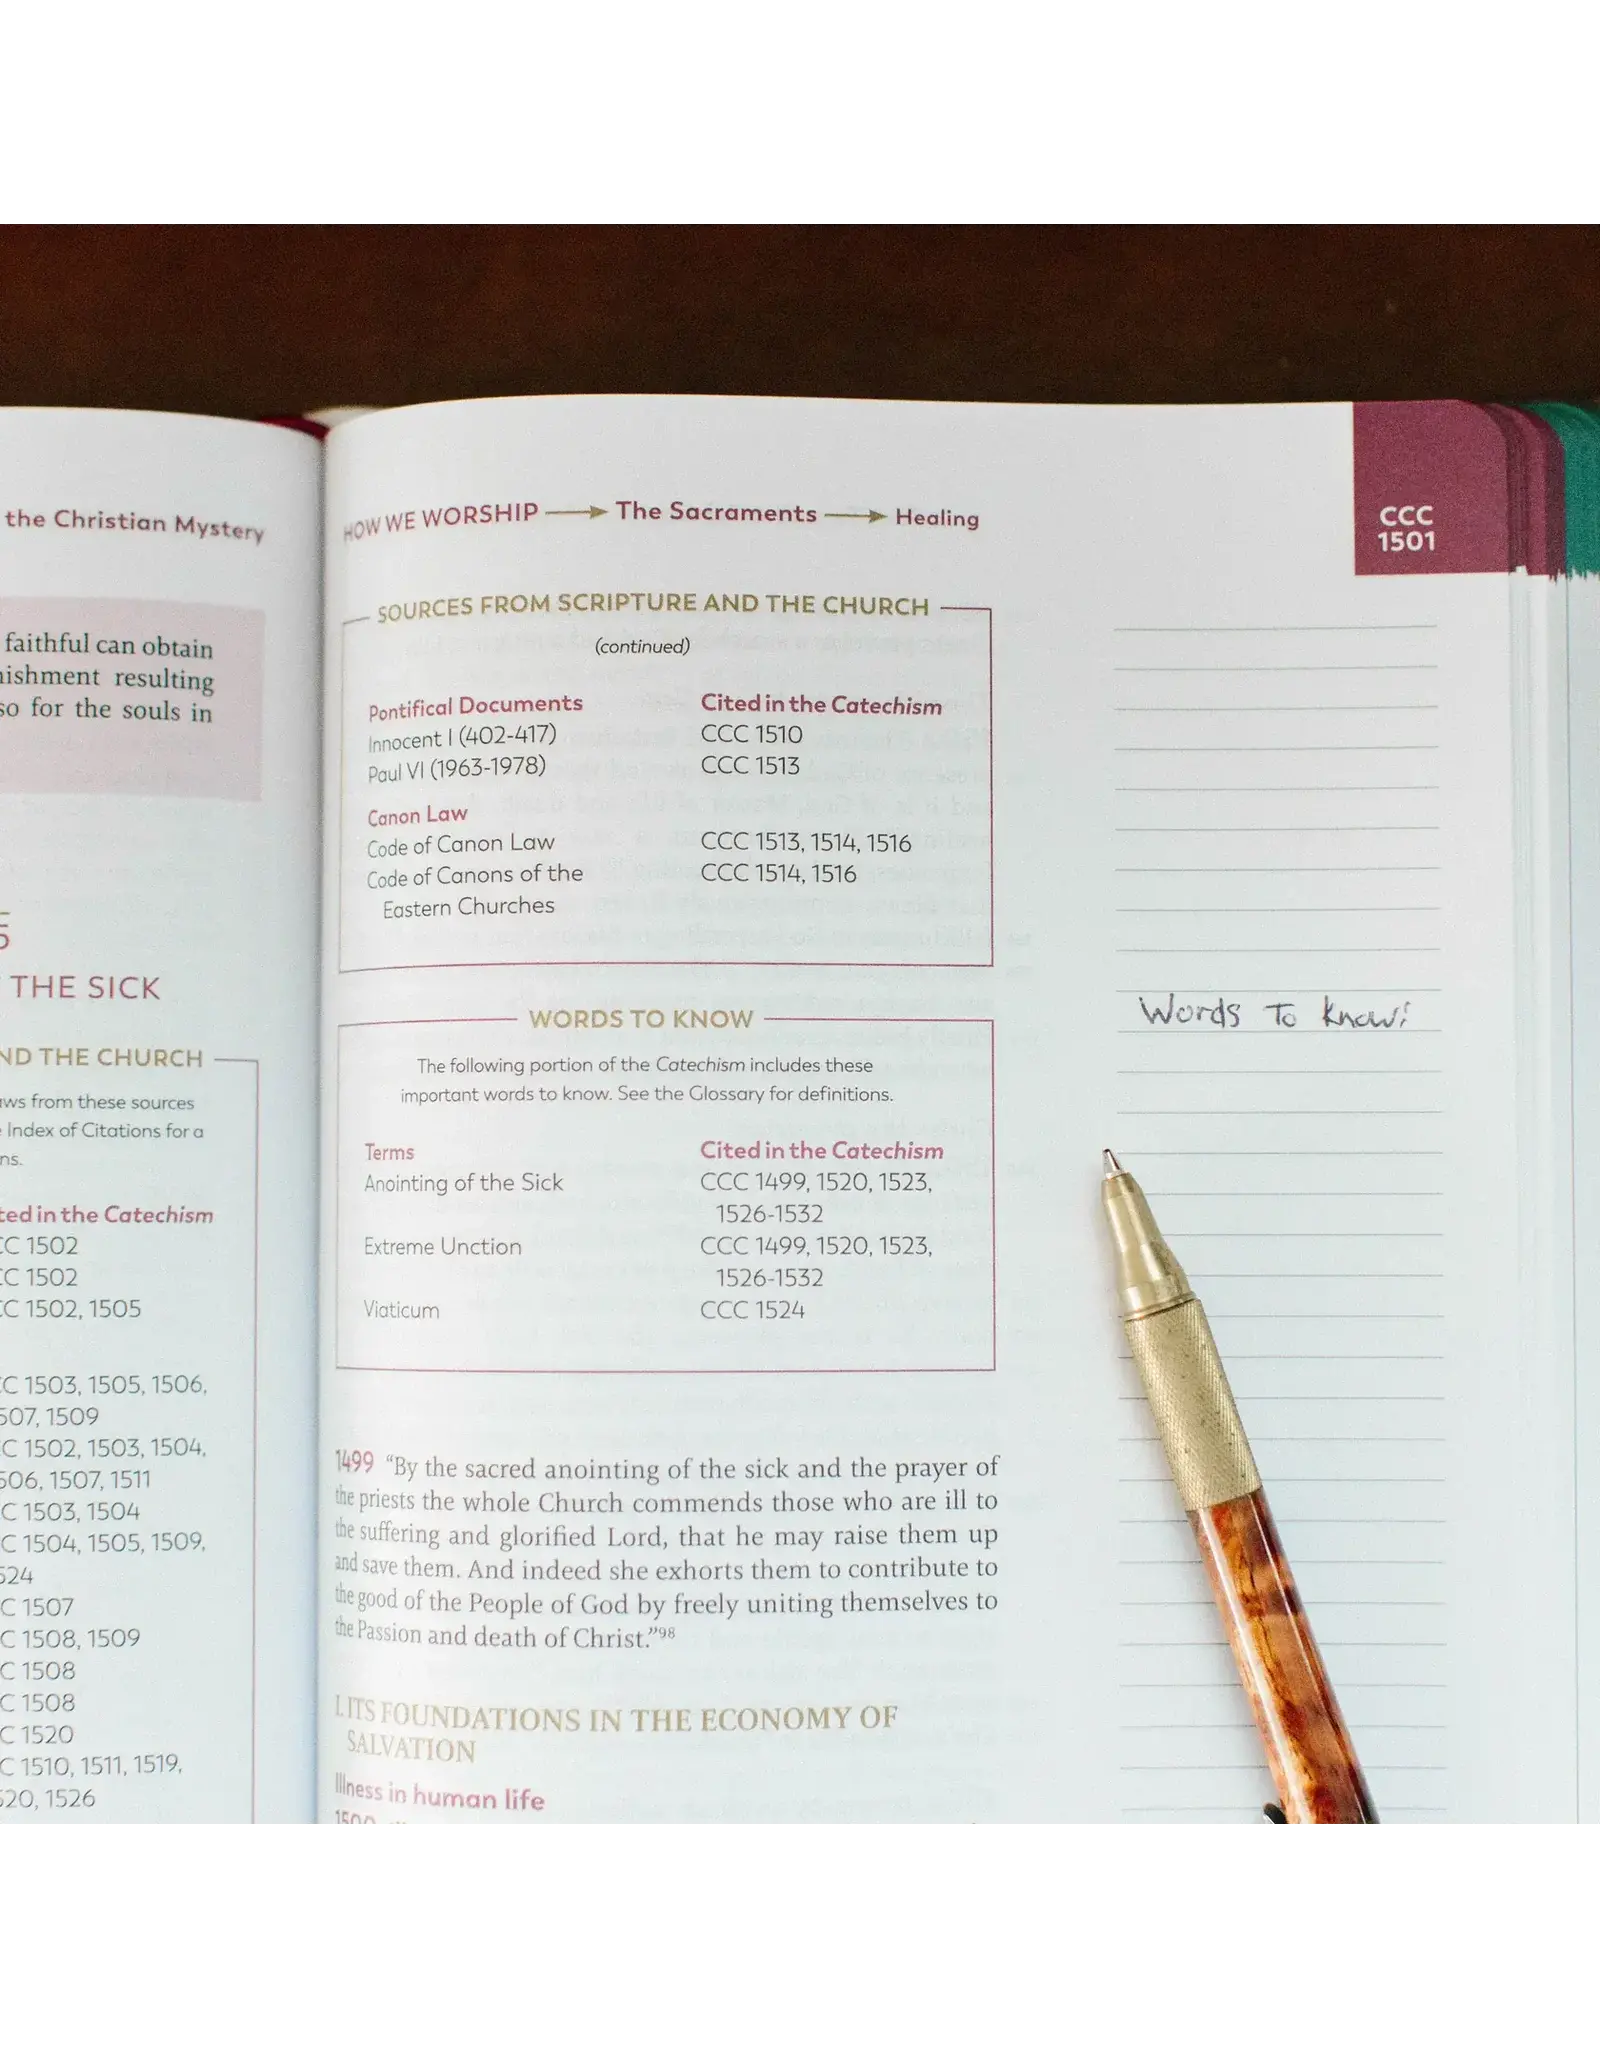 the Christian Mystery
faithful can obtain
resulting
so for the souls in
5
THE SICK
AND THE CHURCH
from these sources
Index of Citations for a
Cited in the Catechism
CC 1502
CC 1502
CC 1502, 1505
CC 1503, 1505, 1506,
507, 1509
CC 1502, 1503, 1504,
506, 1507, 1511
C 1503, 1504
C 1504, 1505, 1509,
524
C 1507
C 1508, 1509
C 1508
C 1508
C 1520
C 1510, 1511, 1519,
520, 1526
HOW WE WORSHIP → The Sacraments → Healing
CCC
1501
SOURCES FROM SCRIPTURE AND THE CHURCH
(continued)
Pontifical Documents Cited in the Catechism
Innocent I (402-417) CCC 1510
Paul VI (1963-1978) CCC 1513
Canon Law
Code of Canon Law CCC 1513, 1514, 1516
Code of Canons of the CCC 1514, 1516
Eastern Churches
WORDS TO KNOW
The following portion of the Catechism includes these
important words to know. See the Glossary for definitions.
Terms Cited in the Catechism
Anointing of the Sick CCC 1499, 1520, 1523,
1526-1532
Extreme Unction CCC 1499, 1520, 1523,
1526-1532
Viaticum CCC 1524
1499 “By the sacred anointing of the sick and the prayer of
the priests the whole Church commends those who are ill to
the suffering and glorified Lord, that he may raise them up
and save them. And indeed she exhorts them to contribute to
the good of the People of God by freely uniting themselves to
the Passion and death of Christ.”98
I. ITS FOUNDATIONS IN THE ECONOMY OF
SALVATION
Illness in human life
1500
Words To Know!